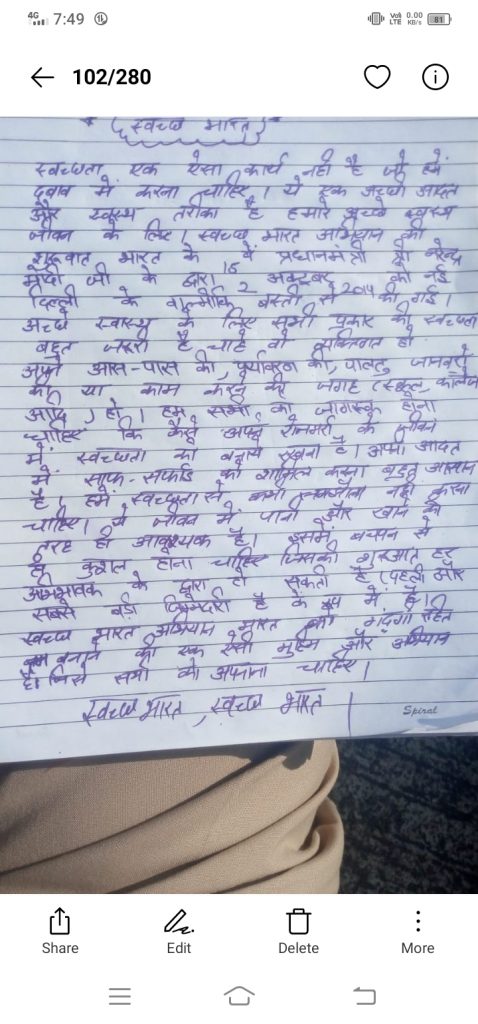 4G 7:49 Voi) LTE 0.00 KB/s 81
102/280
{स्वच्छ भारत}
स्वच्छता एक ऐसा कार्य नही है जो हमे
दबाव में करना चाहिए। ये एक अच्छी आदत
और स्वस्थ तरीका है हमारे अच्छे स्वस्थ
जीवन के लिए। स्वच्छ भारत अभियान की
शुरूवात भारत के 15 वें प्रधानमंत्री श्री नरेन्द्र
मोदी जी के द्वारा 2 अक्टूबर को नई
दिल्ली के वाल्मीकि बस्ती से 2014 की गई।
अच्छे स्वास्थ्य के लिए सभी प्रकार की स्वच्छता
बहुत जरूरी है चाहे वो व्यक्तिगत हो
अपने आस-पास की, पर्यावरण की, पालतु जानवरो
की या काम करने की जगह (स्कूल, कॉलेज
आदि) हो। हम सभी को जागरूक होना
चाहिए कि कैसे अपने रोजमर्रा के जीवन
में स्वच्छता को बनाये रखना है। अपनी आदत
में साफ-सफाई को शामिल करना बहुत आसान
है। हमें स्वच्छता से कभी समझौता नहीं करना
चाहिए। ये जीवन में पानी और खाने की
तरह ही आवश्यक है। इसमें बचपन से
ही कुशल होना चाहिए जिसकी शुरुआत हर
अभिभावक के द्वारा हो सकती है (पहली और
सबसे बड़ी जिम्मेदारी है के रूप में है।
स्वच्छ भारत अभियान भारत को गंदगी रहित
बनाने की एक ऐसी मुहिम और अभियान
है। जिसे सभी को अपनाना चाहिए।
स्वच्छ भारत, स्वच्छ भारत |
Spiral
Share Edit Delete More